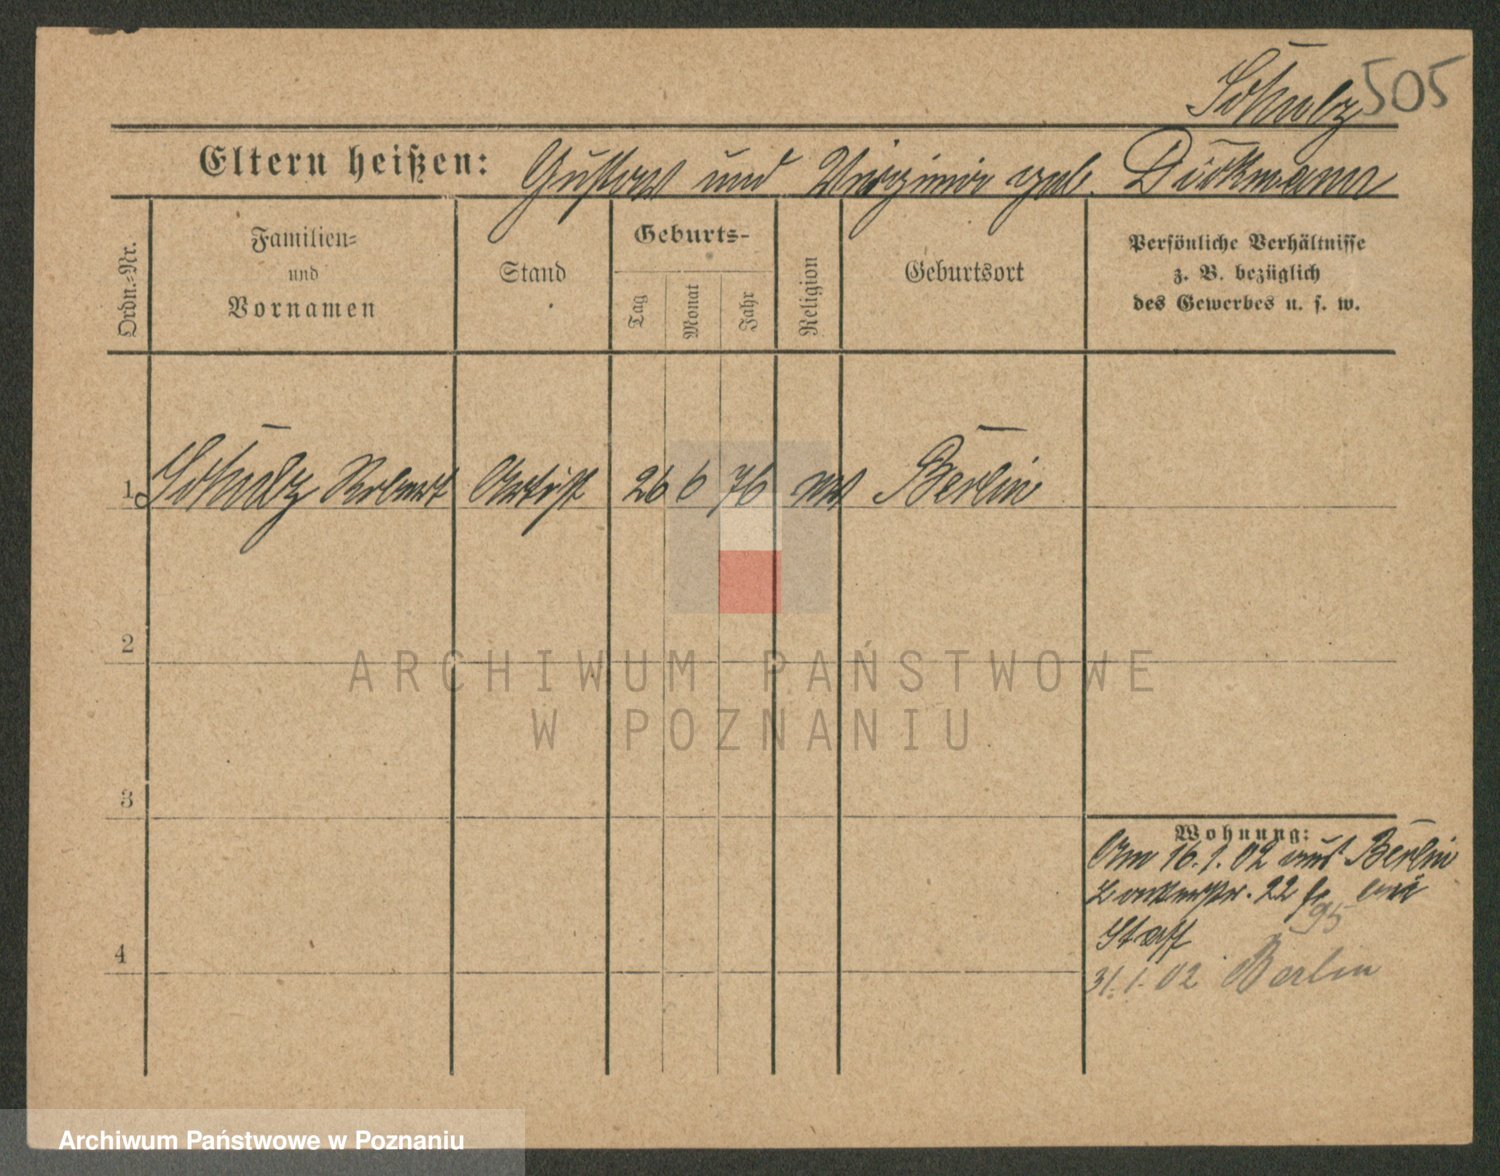 Schulz 505
Eltern heißen: Gustav und Virginie geb. Dickmann
Ordn.-Nr.
Familien-
und
Vornamen
Stand
Geburts-
Tag
Monat
Jahr
Religion
Geburtsort
Persönliche Verhältnisse
z. B. bezüglich
des Gewerbes u. s. w.
1 Schulz Robert Artist 26 6 76 ev Berlin
2
ARCHIWUM PAŃSTWOWE
W POZNANIU
3
Wohnung:
Am 16.1.02 aus Berlin
22 bei
95
4
31.1.02 Berlin
Archiwum Państwowe w Poznaniu